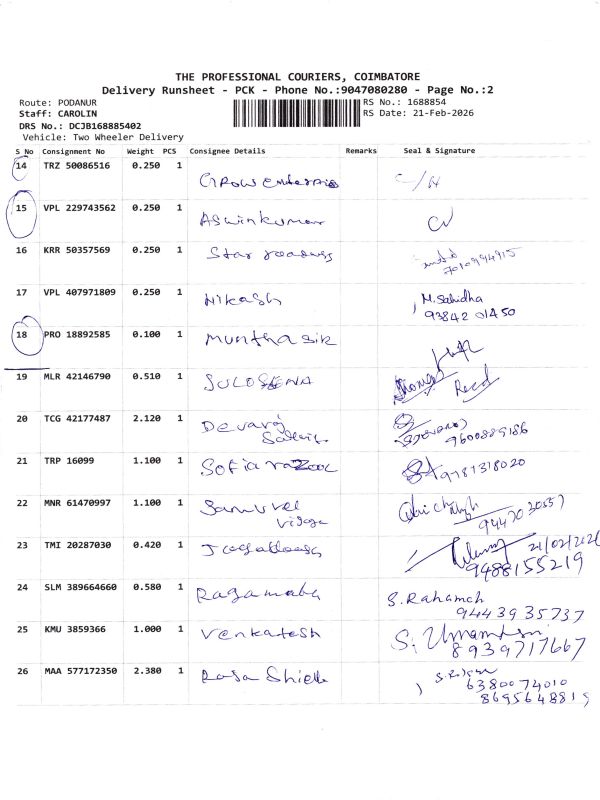 THE PROFESSIONAL COURIERS, COIMBATORE
Delivery Runsheet - PCK - Phone No.:9047080280 - Page No.:2
Route: PODANUR
RS No.: 1688854
Staff: CAROLIN
RS Date: 21-Feb-2026
DRS No.: DCJB168885402
Vehicle: Two Wheeler Delivery
S No Consignment No Weight PCS Consignee Details Remarks Seal & Signature
14 TRZ 50086516 0.250 1
15 VPL 229743562 0.250 1 Aswinkumar
16 KRR 50357569 0.250 1 Star
7010994915
17 VPL 407971809 0.250 1 Nikash M. Sahidha
93842 01450
18 PRO 18892585 0.100 1 Munthasir
19 MLR 42146790 0.510 1 SULOSENA Recd
20 TCG 42177487 2.120 1 Devaraj
9600889186
21 TRP 16099 1.100 1 Sofia 9787318020
22 MNR 61470997 1.100 1 Samuvel
9447030557
23 TMI 20287030 0.420 1 21/02/2026
9488155219
24 SLM 389664660 0.580 1 S. Rahamath
9443935737
25 KMU 3859366 1.000 1 Venkatesh
8939717667
26 MAA 577172350 2.380 1 Rasa
6380074010
8695648819